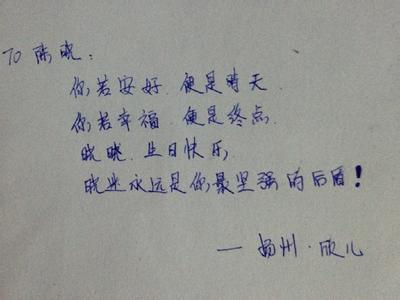 TO 陈晓：
你若安好，便是晴天．
你若幸福，便是终点．
晓晓，生日快乐，
晓迷永远是你最坚强的后盾！
— 扬州·欣儿